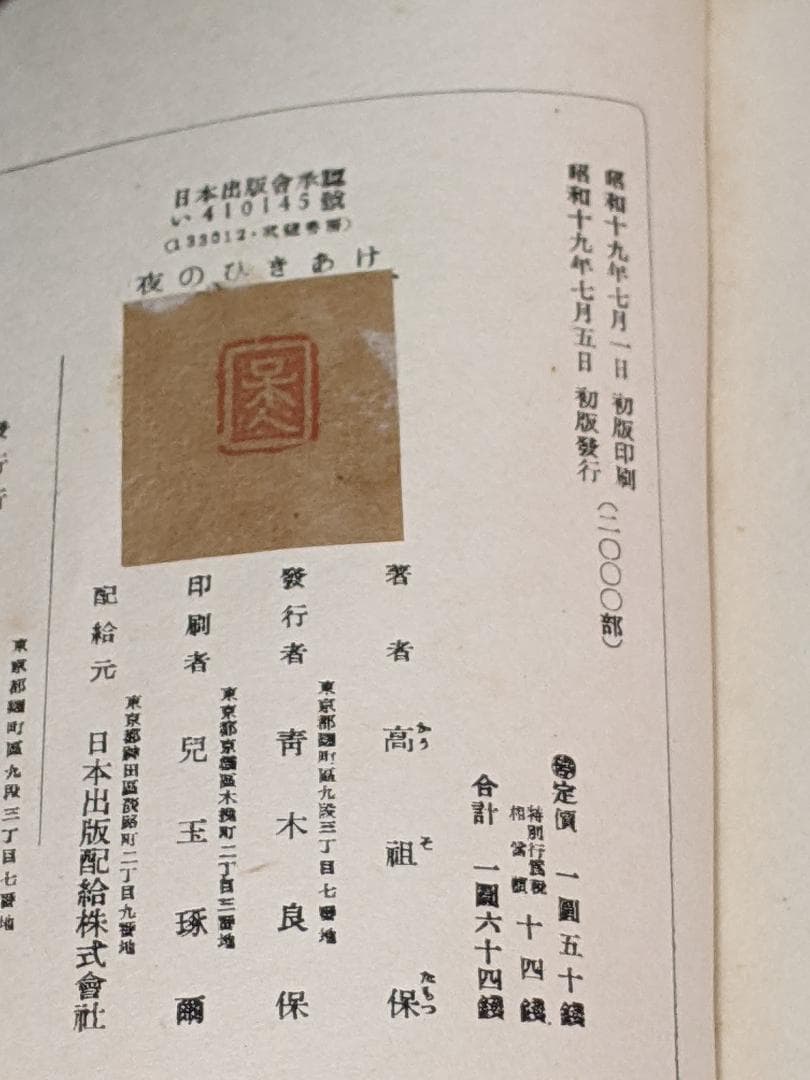 昭和十九年七月一日 初版印刷
昭和十九年七月五日 初版發行
(二〇〇〇部)
定價 一圓五十錢
特別行爲税
相當額
十四錢
合計 一圓六十四錢
日本出版會承認
い410145號
夜のひきあけ
著者 高祖保
かう そ たもつ
東京都麴町區九段三丁目七番地
發行者 靑木良保
東京都京橋區木挽町二丁目三番地
印刷者 兒玉琢爾
東京都神田區淡路町二丁目九番地
配給元 日本出版配給株式會社
東京都麴町區九段三丁目七番地
發行